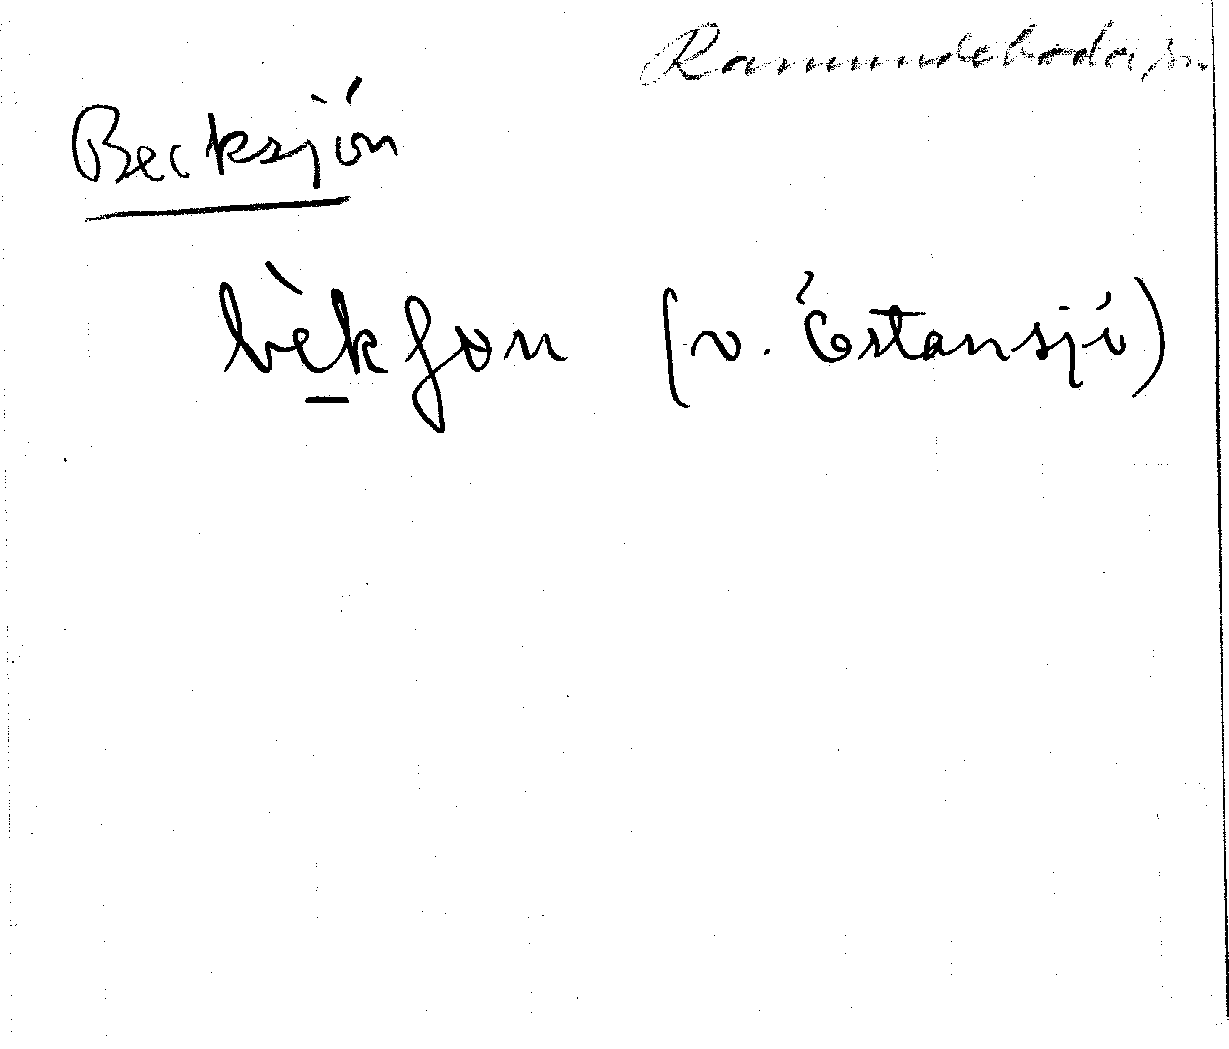 Ramundeboda sn.
Becksjön
bèkʃon (v. Östansjö)